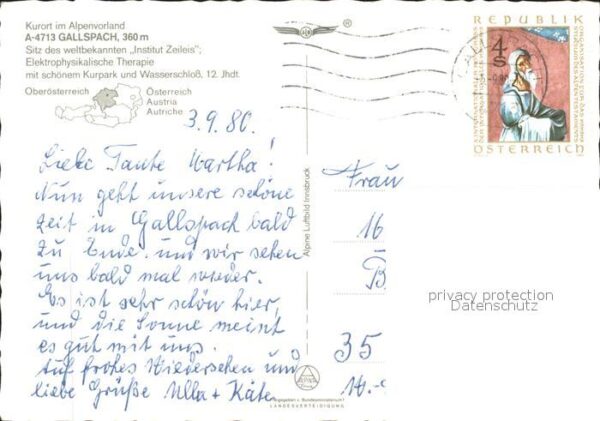 Kurort im Alpenvorland
A-4713 GALLSPACH, 360 m
Sitz des weltbekannten „Institut Zeileis";
Elektrophysikalische Therapie
mit schönem Kurpark und Wasserschloß, 12. Jhdt.
Oberösterreich
Österreich
Austria
Autriche
3.9.80.
Liebe Tante Martha!
Nun geht unsere schöne
Zeit in Gallspach bald
zu Ende und wir sehen
uns bald mal wieder.
Es ist sehr schön hier,
und die Sonne meint
es gut mit uns.
Auf frohes Wiedersehen und
liebe Grüße Ulla + Käte
Alpine Luftbild Innsbruck
LANDESVERTEIDIGUNG
REPUBLIK
4
S
ÖSTERREICH
Frau
16
B
35
privacy protection
Datenschutz